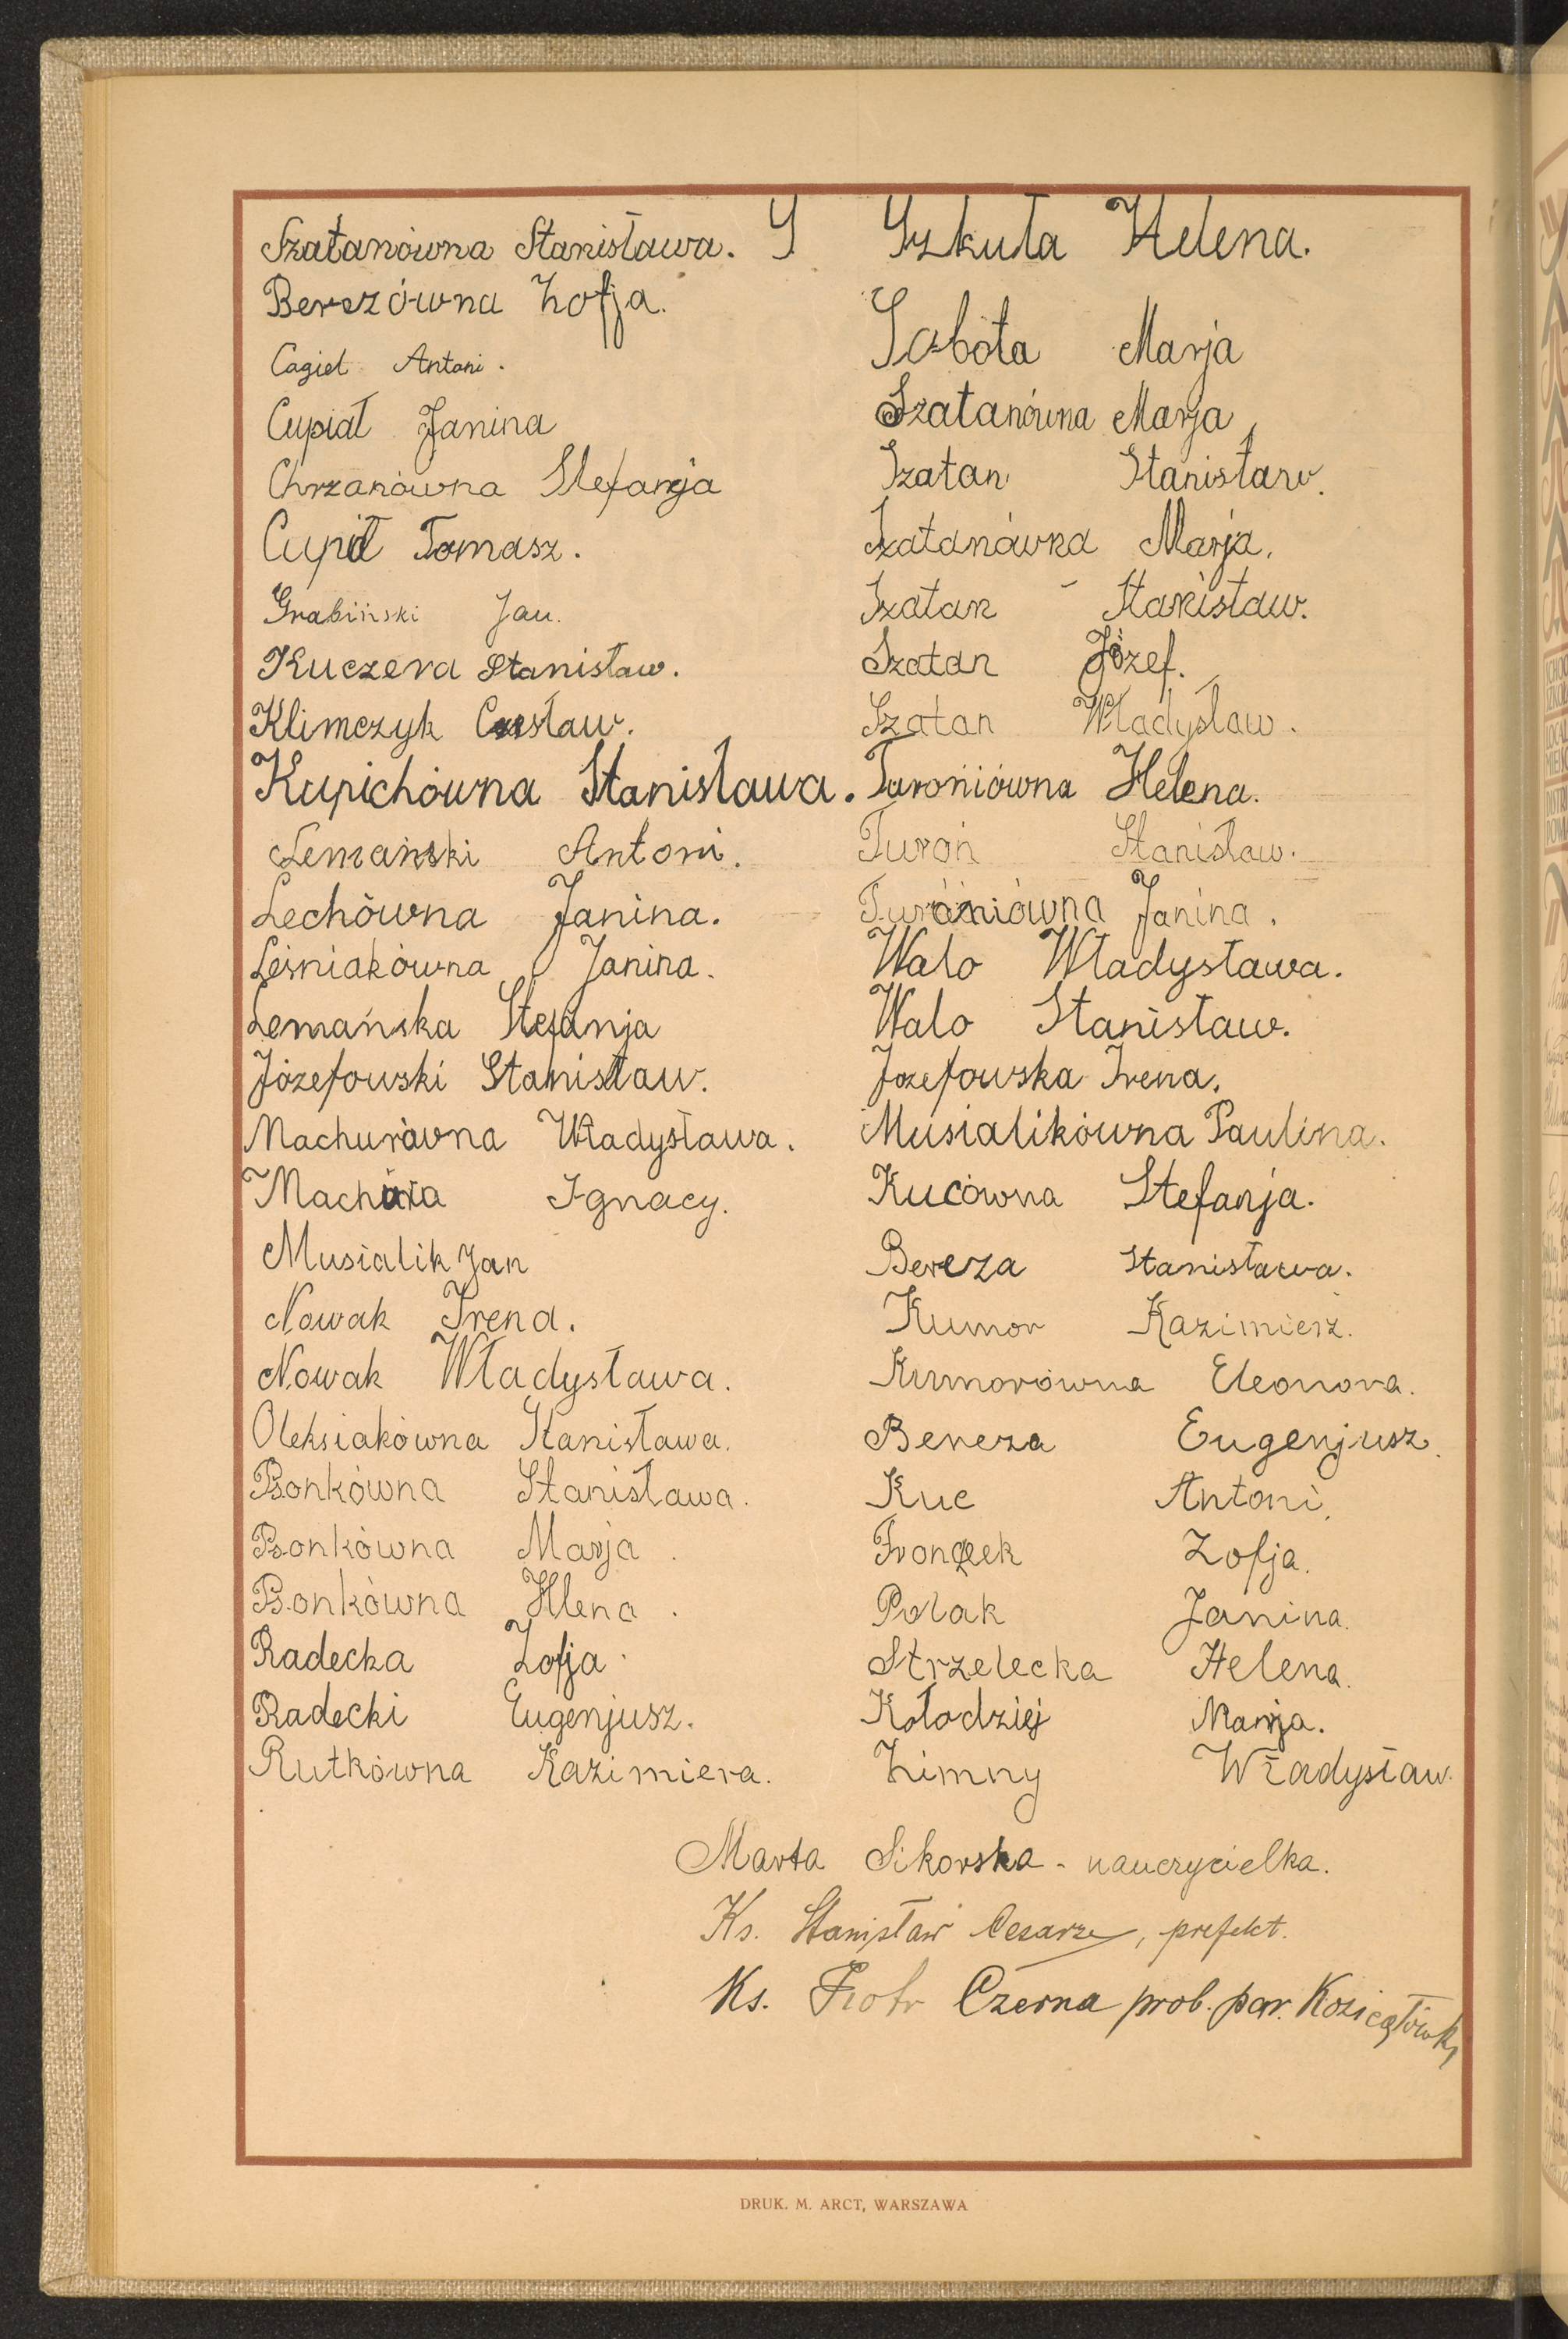 Szatanówna Stanisława. S
Berezówna Zofja.
Cagiel Antoni.
Cupiał Janina
Chrzanówna Stefanja
Cupił Tomasz.
Grabiński Jan.
Kuczera Stanisław.
Klimczyk Czesław.
Kupichówna Stanisława.
Lemański Antoni.
Lechówna Janina.
Leśniakówna Janina.
Lemańska Stefanja
Józefowski Stanisław.
Machurówna Władysława.
Machura Ignacy.
Musialik Jan
Nowak Irena.
Nowak Władysława.
Oleksiakówna Stanisława.
Psonkówna Stanisława.
Psonkówna Marja.
Psonkówna Hlena.
Radecka Zofja.
Radecki Eugenjusz.
Rutkówna Kazimiera.
Szkuła Helena.
Sobota Marja
Szatanówna Marja
Szatan Stanisław.
Szatanówna Marja.
Szatan Stanisław.
Szatan Józef.
Szatan Władysław.
Turoniówna Helena.
Turoń Stanisław.
Turoniówna Janina.
Walo Władysława.
Walo Stanisław.
Józefowska Irena.
Musialikówna Paulina.
Kucówna Stefanja.
Bereza Stanisława.
Kumor Kazimierz.
Kumorówna Eleonora.
Bereza Eugenjusz.
Kuc Antoni.
Fronczek Zofja.
Polak Janina.
Strzelecka Helena.
Kołodziej Marja.
Zimny Władysław.
Marta Sikorska - nauczycielka.
Ks. Stanisław Cesarz, prefekt.
Ks. Piotr Czerna prob. par.
DRUK. M. ARCT, WARSZAWA